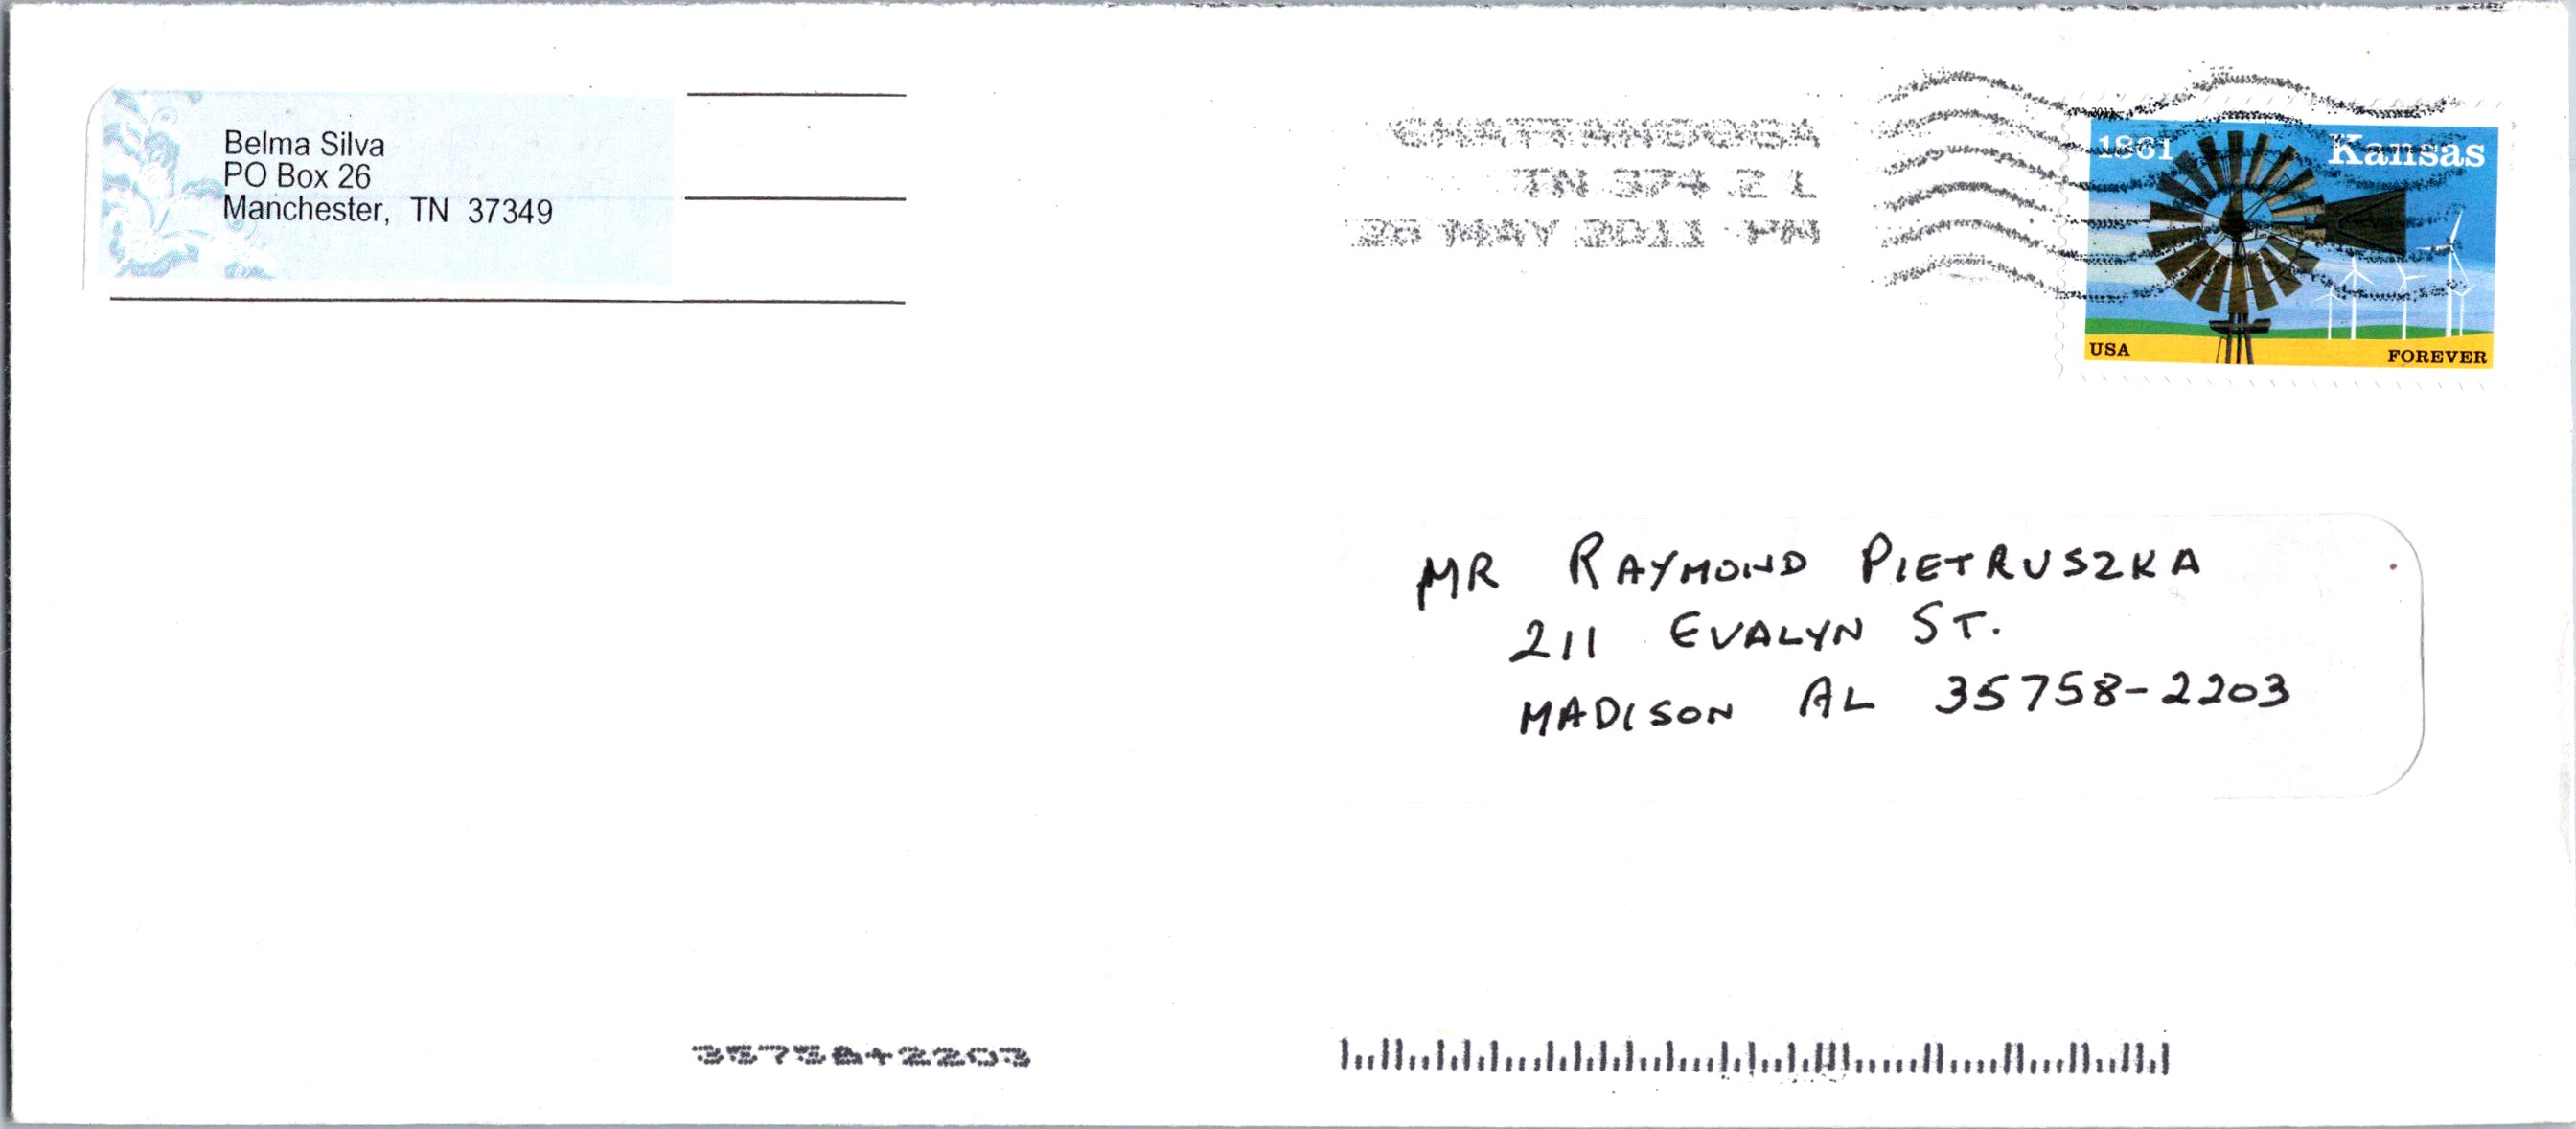 Belma Silva
PO Box 26
Manchester, TN 37349
CHATTANOOGA
TN 374 2 L
26 MAY 2011 PM
2011
1861 Kansas
USA FOREVER
MR RAYMOND PIETRUSZKA
211 EVALYN ST.
MADISON AL 35758-2203
35758+2203